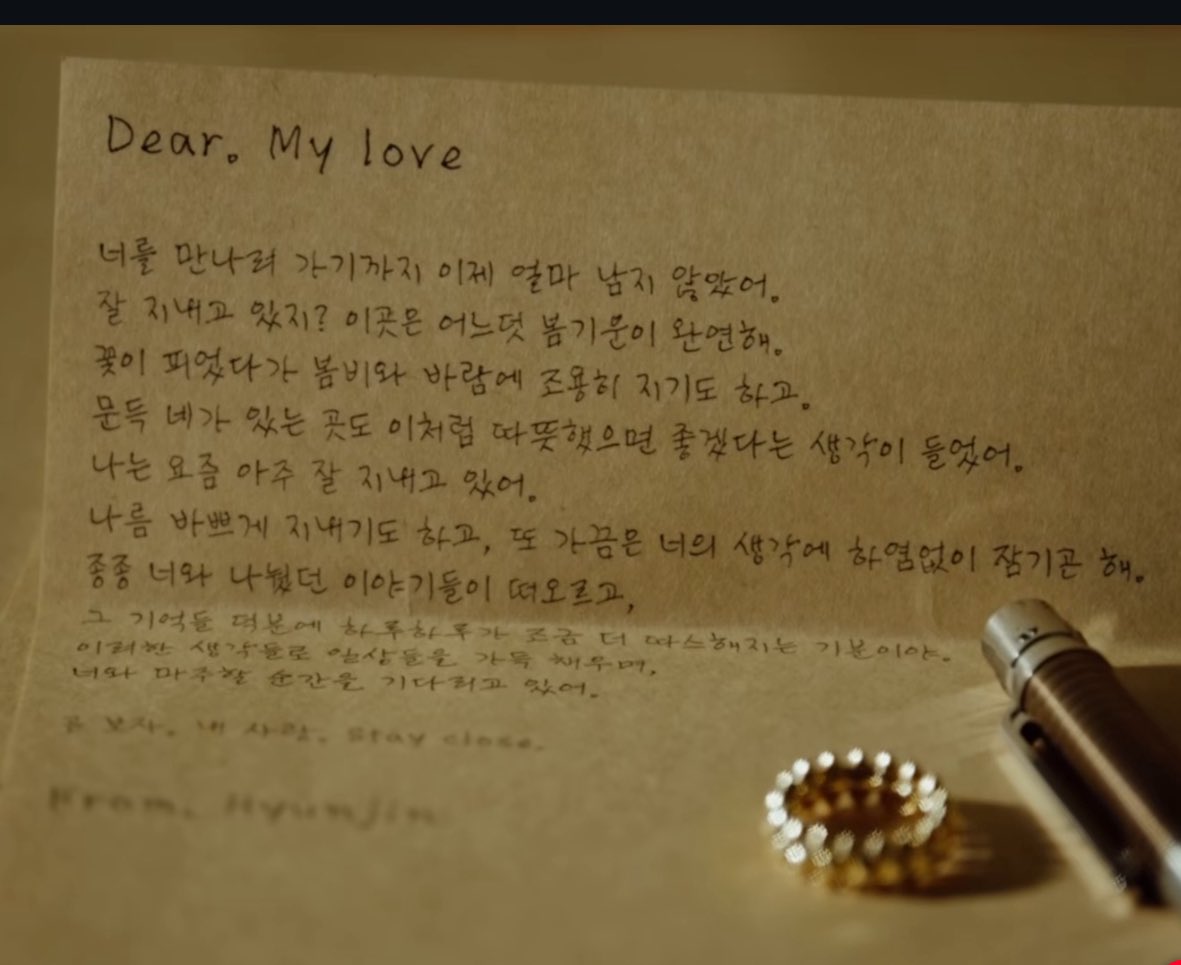 Dear. My love
너를 만나러 가기까지 이제 얼마 남지 않았어.
잘 지내고 있지? 이곳은 어느덧 봄기운이 완연해.
꽃이 피었다가 봄비와 바람에 조용히 지기도 하고.
문득 네가 있는 곳도 이처럼 따뜻했으면 좋겠다는 생각이 들었어.
나는 요즘 아주 잘 지내고 있어.
나름 바쁘게 지내기도 하고, 또 가끔은 너의 생각에 하염없이 잠기곤 해.
종종 너와 나눴던 이야기들이 떠오르고,
그 기억들 덕분에 하루하루가 조금 더 따스해지는 기분이야.
이러한 생각들로 일상들을 가득 채우며,
너와 마주할 순간을 기다리고 있어.
곧 보자. 내 사랑. Stay close.
From. Hyunjin